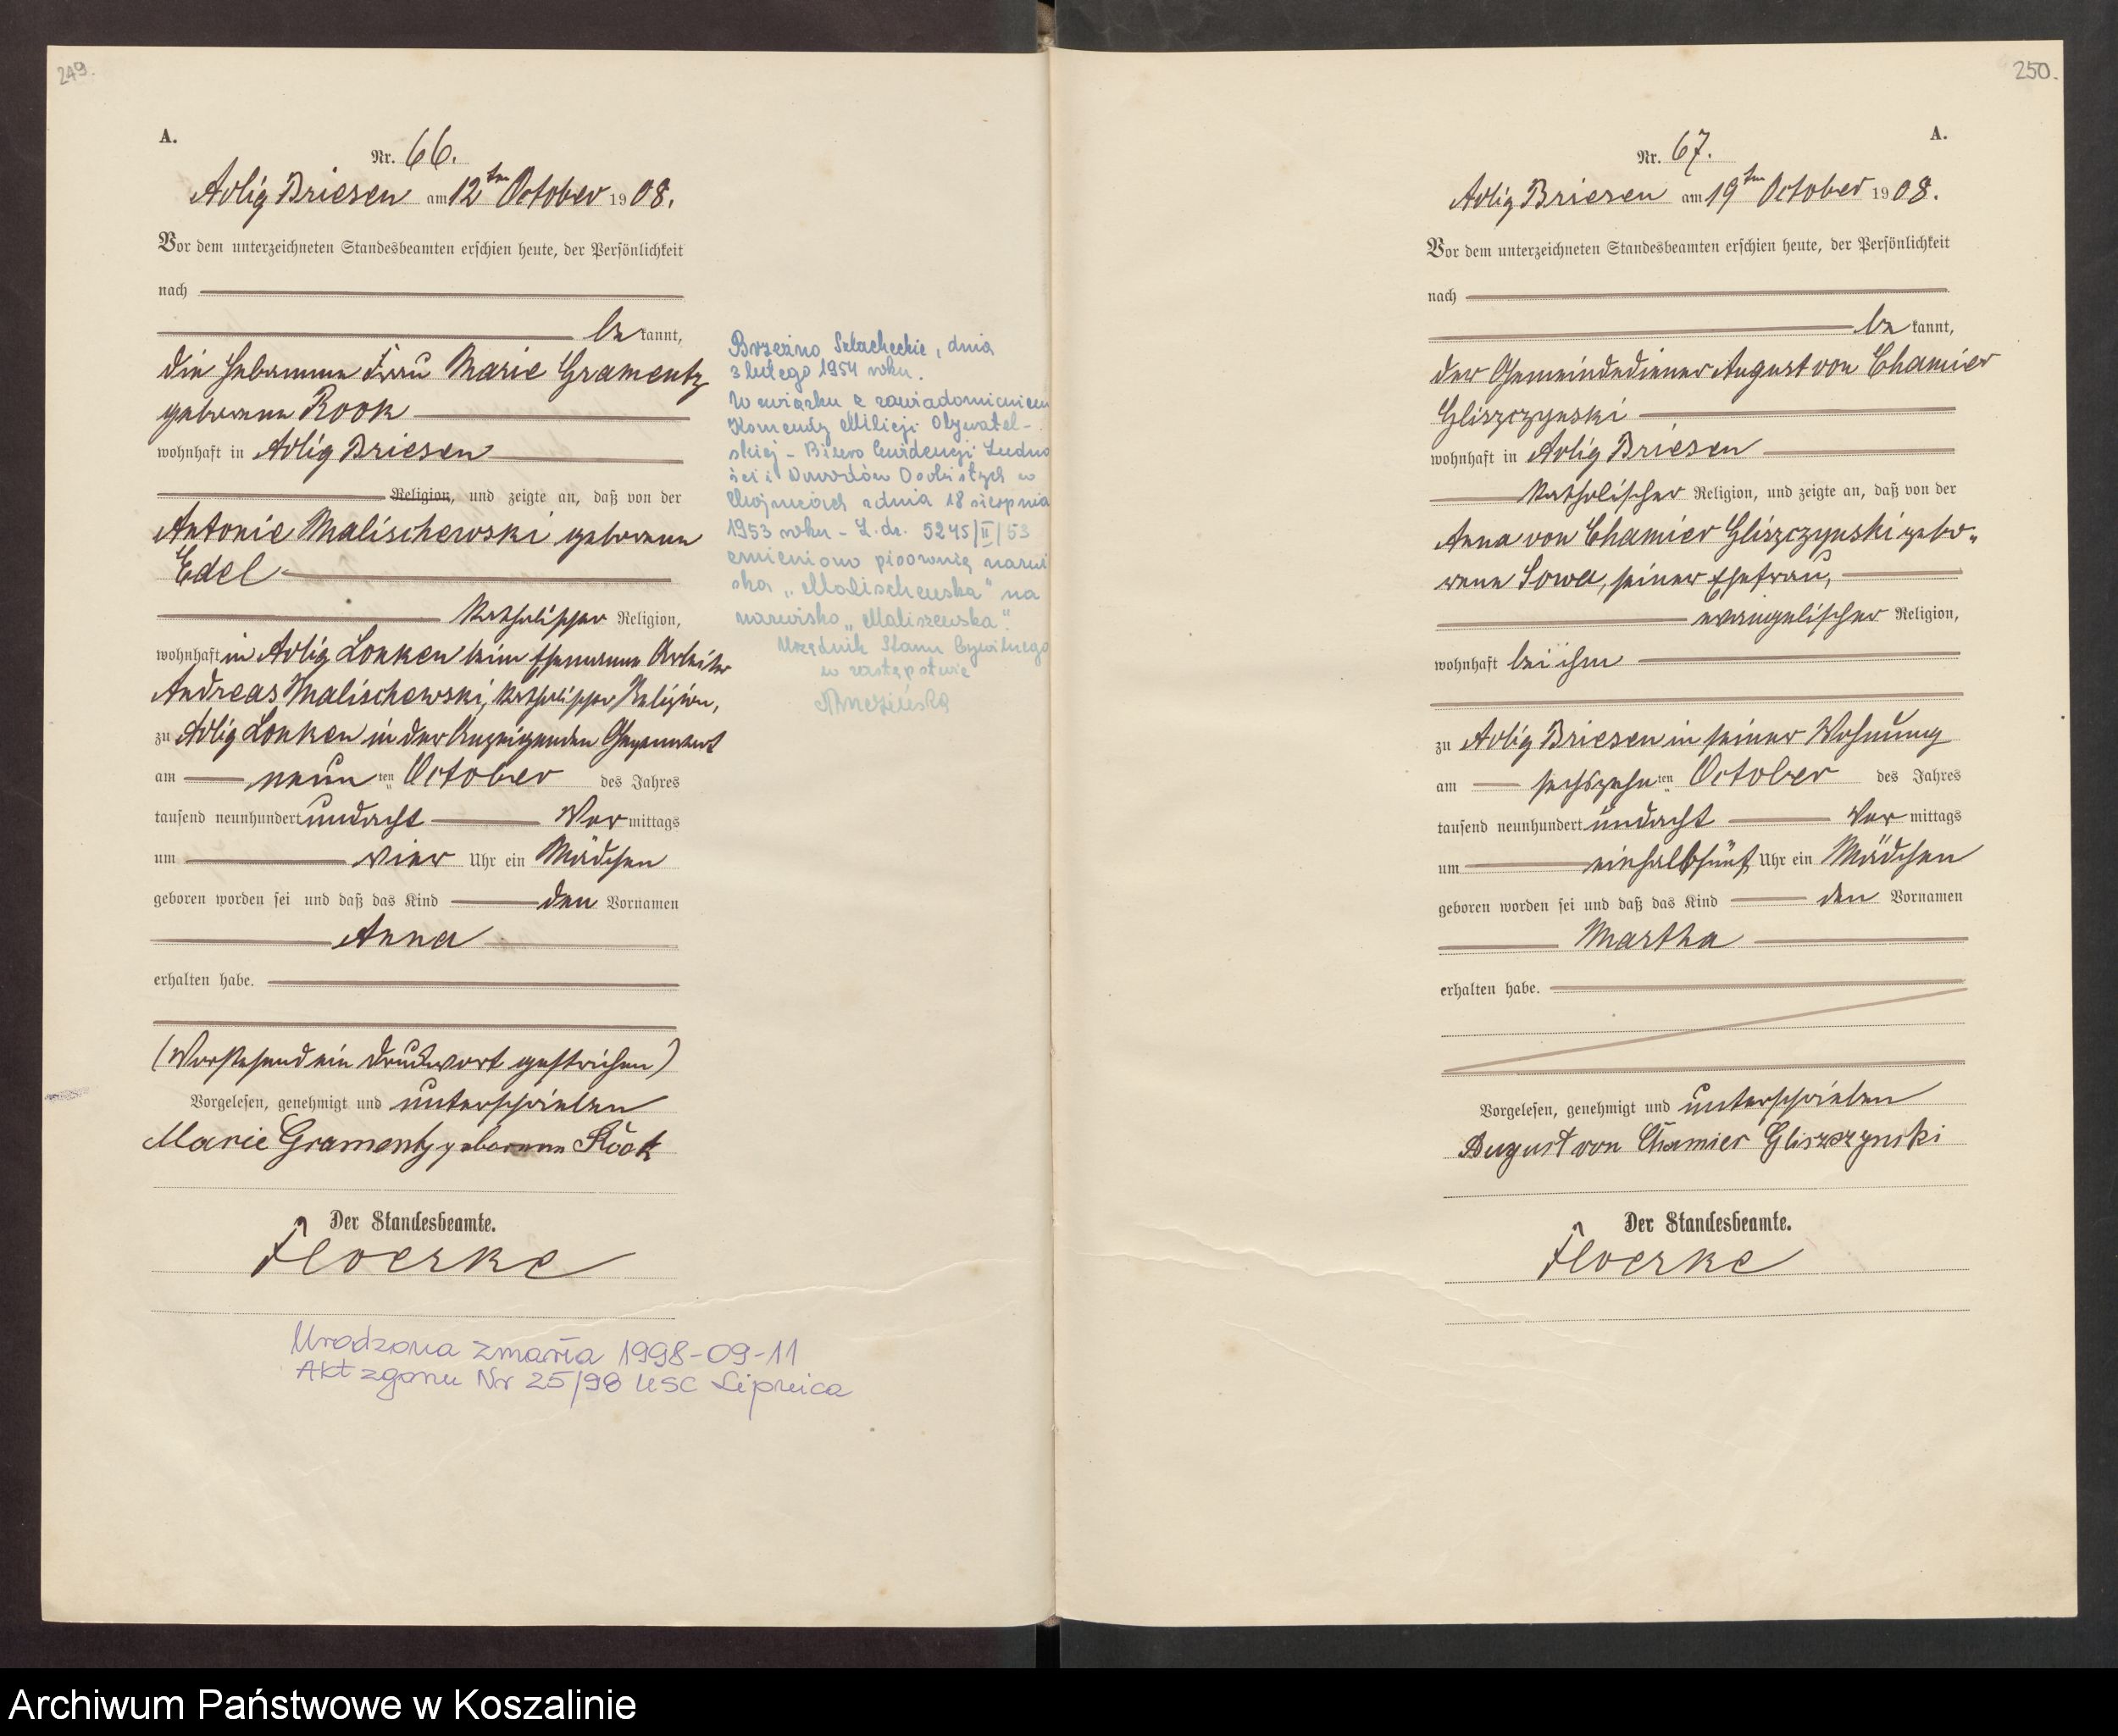 249.
A.
Nr. 66.
Adlig Briesen am 12ten October 1908.
Vor dem unterzeichneten Standesbeamten erschien heute, der Persönlichkeit
nach
be kannt,
die Hebamme Frau Marie Gramentz
geborene Rook
wohnhaft in Adlig Briesen
Religion, und zeigte an, daß von der
Antonie Malischewski geborene
Edel
katholischer Religion,
wohnhaft in Adlig Lonken beim Ehemanne Arbeiter
Andreas Malischewski, katholischer Religion,
zu Adlig Lonken in der Anzeigenden Gegenwart
am neun ten October des Jahres
tausend neunhundert undacht Vor mittags
um vier Uhr ein Mädchen
geboren worden sei und daß das Kind den Vornamen
Anna
erhalten habe.
(Vorstehend ein Druckwort gestrichen)
Vorgelesen, genehmigt und unterschrieben
Marie Gramentz geborene Rook
Der Standesbeamte.
Floerke
Urodzona zmarła 1998-09-11
Akt zgonu Nr 25/98 USC Lipnica
Brzeźno Szlacheckie, dnia
3 lutego 1954 roku.
W związku z zawiadomieniem
Komendy Milicji Obywatel-
skiej - Biuro Ewidencji Ludno
ści i Dowodów Osobistych w
Chojnicach z dnia 18 sierpnia
1953 roku - L.dz. 5245/II/53
zmieniono pisownię nazwi
ska „Malischewska" na
nazwisko „Maliszewska".
Urzędnik Stanu Cywilnego
w zastępstwie
250.
A.
Nr. 67.
Adlig Briesen am 19ten October 1908.
Vor dem unterzeichneten Standesbeamten erschien heute, der Persönlichkeit
nach
be kannt,
der Gemeindediener August von Chamier
Gliszczynski
wohnhaft in Adlig Briesen
katholischer Religion, und zeigte an, daß von der
Anna von Chamier Gliszczynski gebo-
rene Sowa, seiner Ehefrau,
evangelischer Religion,
wohnhaft bei ihm
zu Adlig Briesen in seiner Wohnung
am sechszehn ten October des Jahres
tausend neunhundert undacht Vor mittags
um einhalbfünf Uhr ein Mädchen
geboren worden sei und daß das Kind den Vornamen
Martha
erhalten habe.
Vorgelesen, genehmigt und unterschrieben
August von Chamier Gliszczynski
Der Standesbeamte.
Floerke
Archiwum Państwowe w Koszalinie